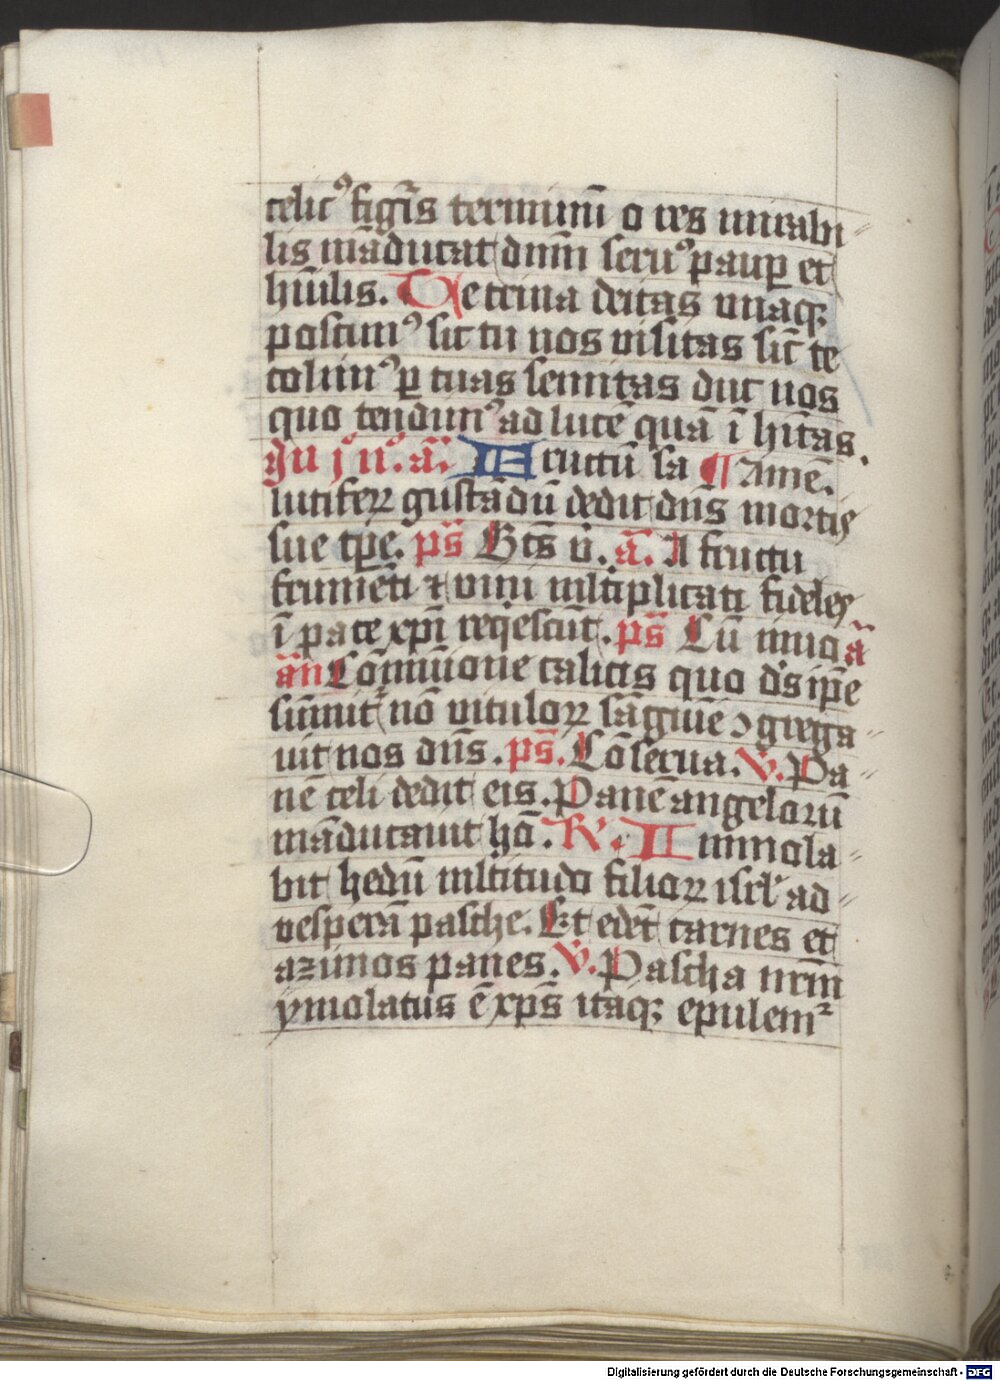 celic⁹ figis terminū o res mirabi
lis māducat dūm seru⁹ paup et
hūilis. Te trina deitas unaqꝫ
poscim⁹ sic tu nos visitas sic̄ te
colim⁹ ꝑ tuas semitas duc nos
quo tendim⁹ ad lucē quā ī hītas.
In j n͛. añ. Fructū sa ¶ Amē.
lutiferꝝ gustādū dedit dn̄s mortis
sue tꝑe. ps̄ Bt̄s v. ā. A fructu
frumēti ⁊ vini mltiplicati fideles
ī pace xp̄i reqiescūt. ps̄ Cū īuo ā
an Cōmūione calicis quo ds̄ ip̄e
sumit̉ nō vituloꝝ sāguīe ↄgrega
vit nos dn̄s. ps̄. Cōserua. V̄. Pa
nē celi dedit eis. Panē angeloꝝ
māducauit hō. R̄. Immola
bit hedū mltitudo filioꝝ isrl̄ ad
vesperā pasche. Et edēt carnes et
azimos panes. V̄. Pascha nr̄m
ymolatus ē xp̄s itaqꝫ epulem̉
Digitalisierung gefördert durch die Deutsche Forschungsgemeinschaft - DFG